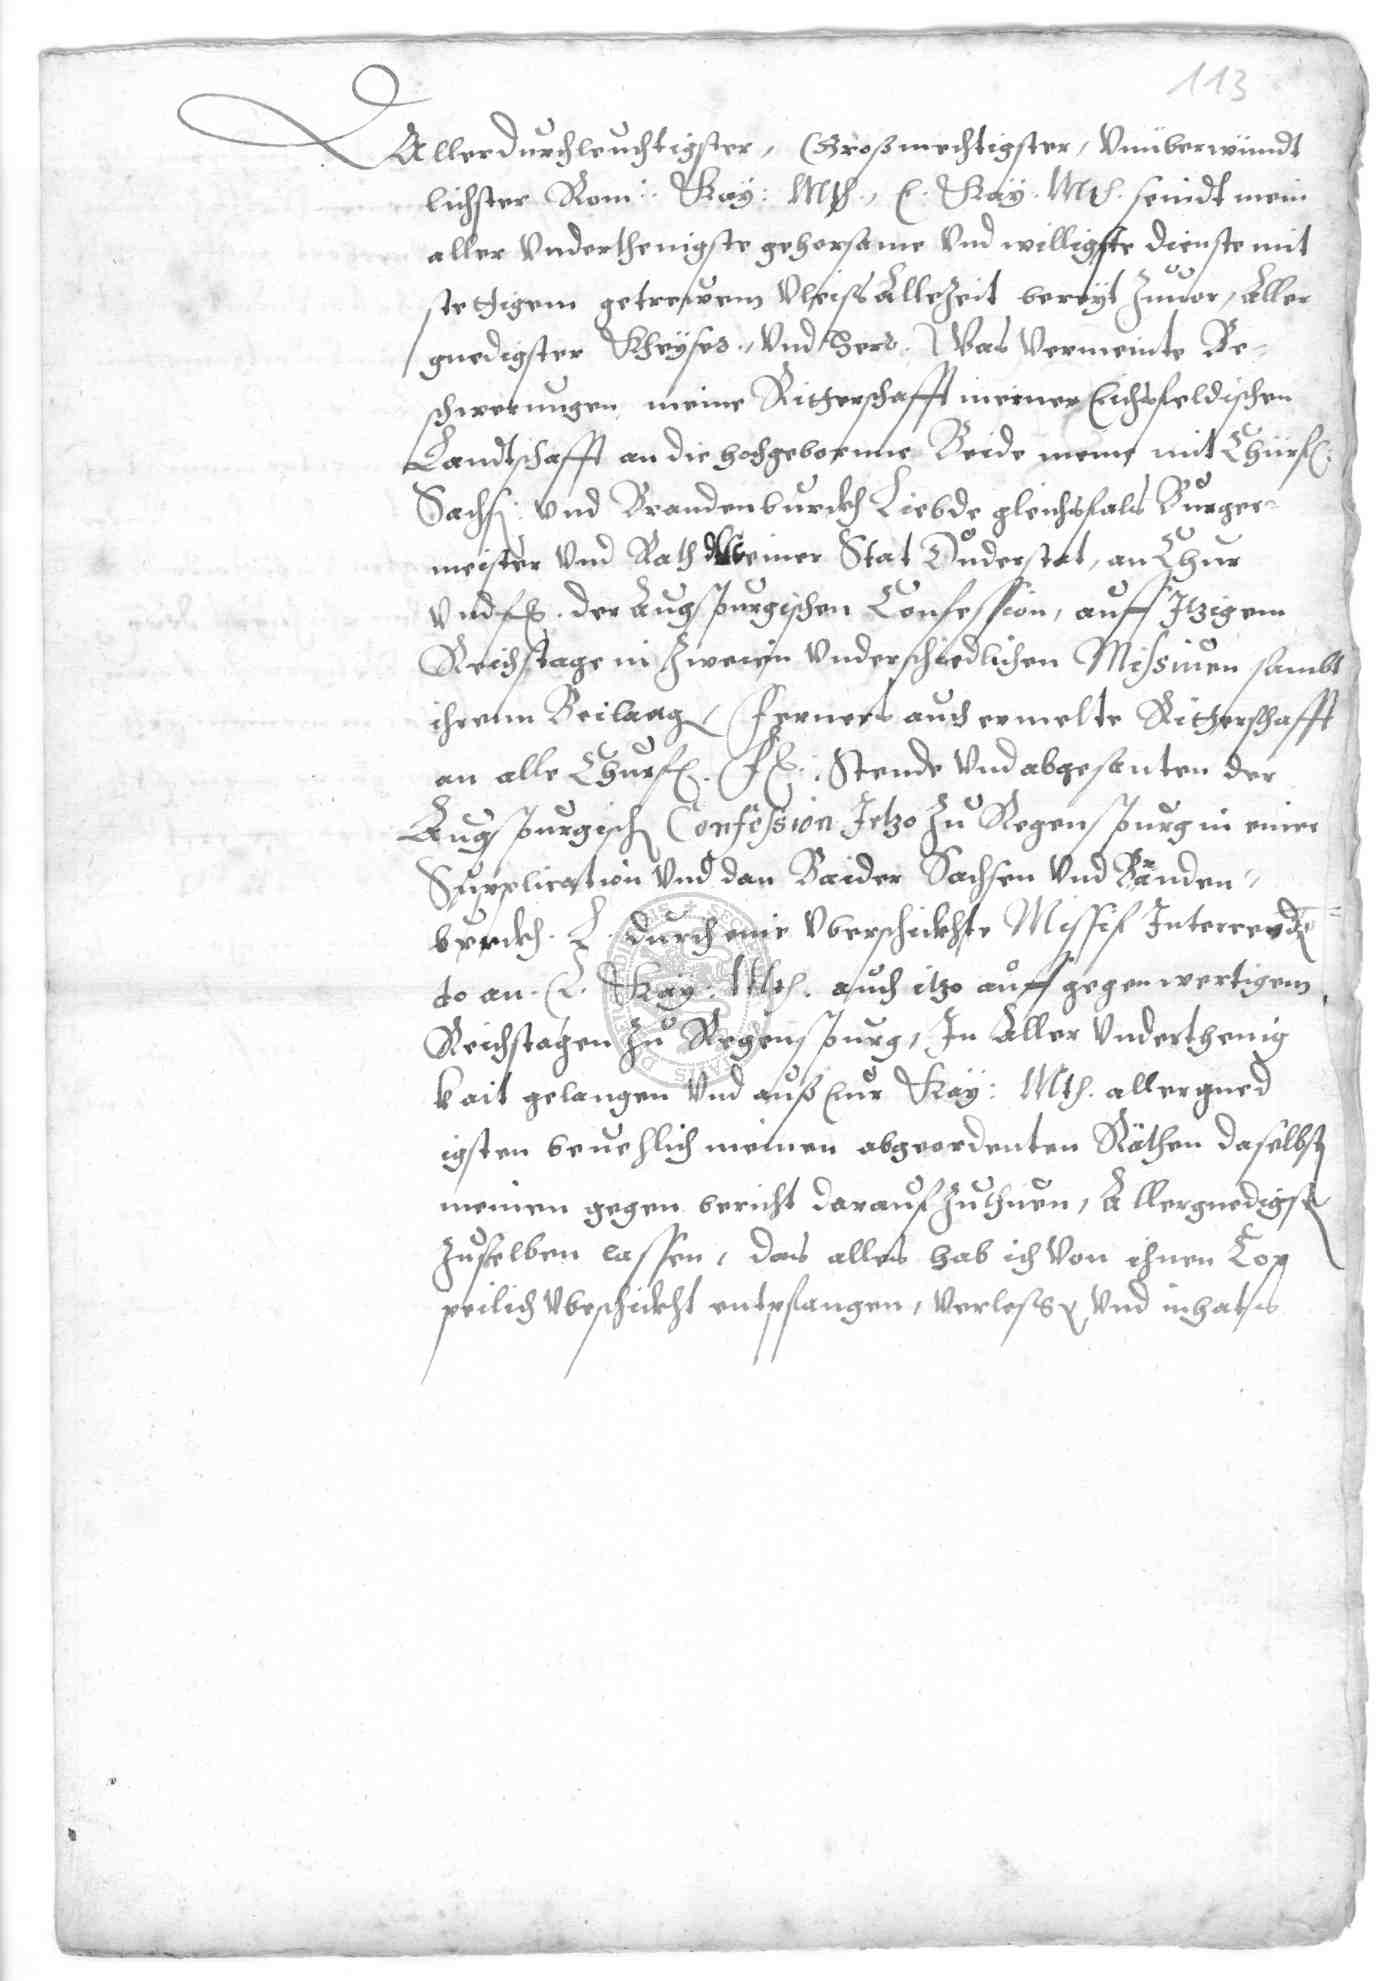 113
Allerdurchleuchtigster, Großmechtigster, Vnüberwündt
lichster Rom: Kay: Mtt., E. Kay. Mtt. seindt mein
aller Vnderthenigste gehorsame Vnd willigste dienste mit
stettigem getrewem Vleiss AlleZeit bereyt Zuuor, Aller
gnedigster Kheyser, Vnd Herr. Was Vermeinte Be-
schwerungen meine Ritterschafft meiner Eichsfeldischen
Landtschafft an die hochgebornne Beide meine mit Churf.
Sachs: Vnd Brandenburckh Liebde gleichsfals Burger-
meister Vnd Rath meiner Stat Duderstat, an Chur
Vnd f. der Augspurgischen Confession, auff Jtzigem
Reichstage in Zweien Vnderschiedlichen Missiuen sambt
ihrenn Beilaag, Ferners auch ermelte Ritterschafft
an alle Churf. F. Stende Vnd abgesanten der
Augspurgisch Confession Jetzo Zu Regenspurg in einer
Supplication Vnd dan Baider Sachsen Vnd Branden-
burckh. L. durch eine Vberschickhte Missif Intercend
to an. E. Kay: Mtt. auch itzo auff gegenwertigem
Reichstagen Zu Regenspurg, In Aller Vnderthenig
kait gelangen Vnd auß Eur Kay: Mtt. allergned
igsten beuehlich meinen abgeordenten Räthen daselbst
meinen gegen bericht darauf Zuthuen, Allergnedigst
Zustelben lassen, das alles hab ich Von ihnen Cop
peilich Vbeschickht entpfangen, Verlesse Vnd inhalts